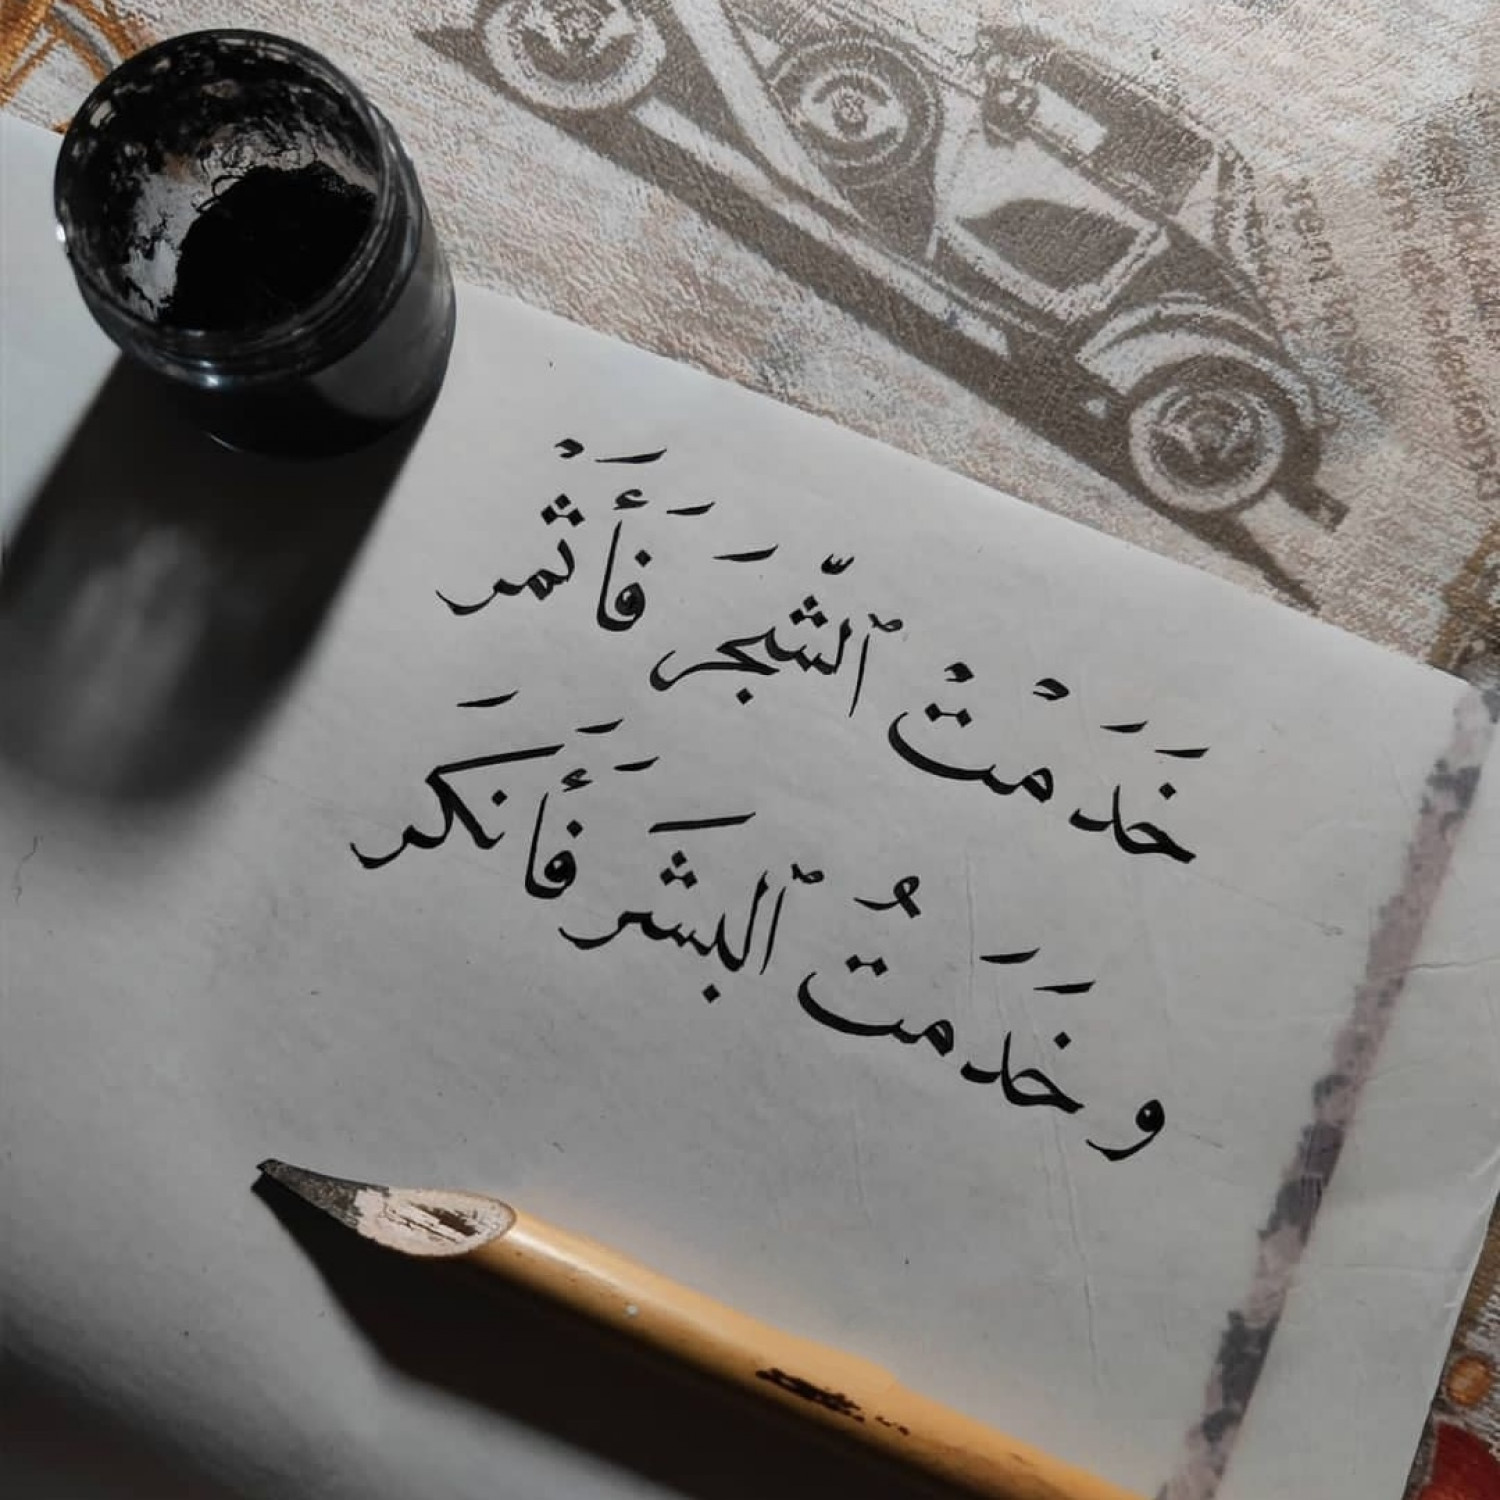 خَدَمْتْ ٱلشّجَر فَأَثْمَر
وخَدَمتُ ٱلبشَر فَأَنَكَر